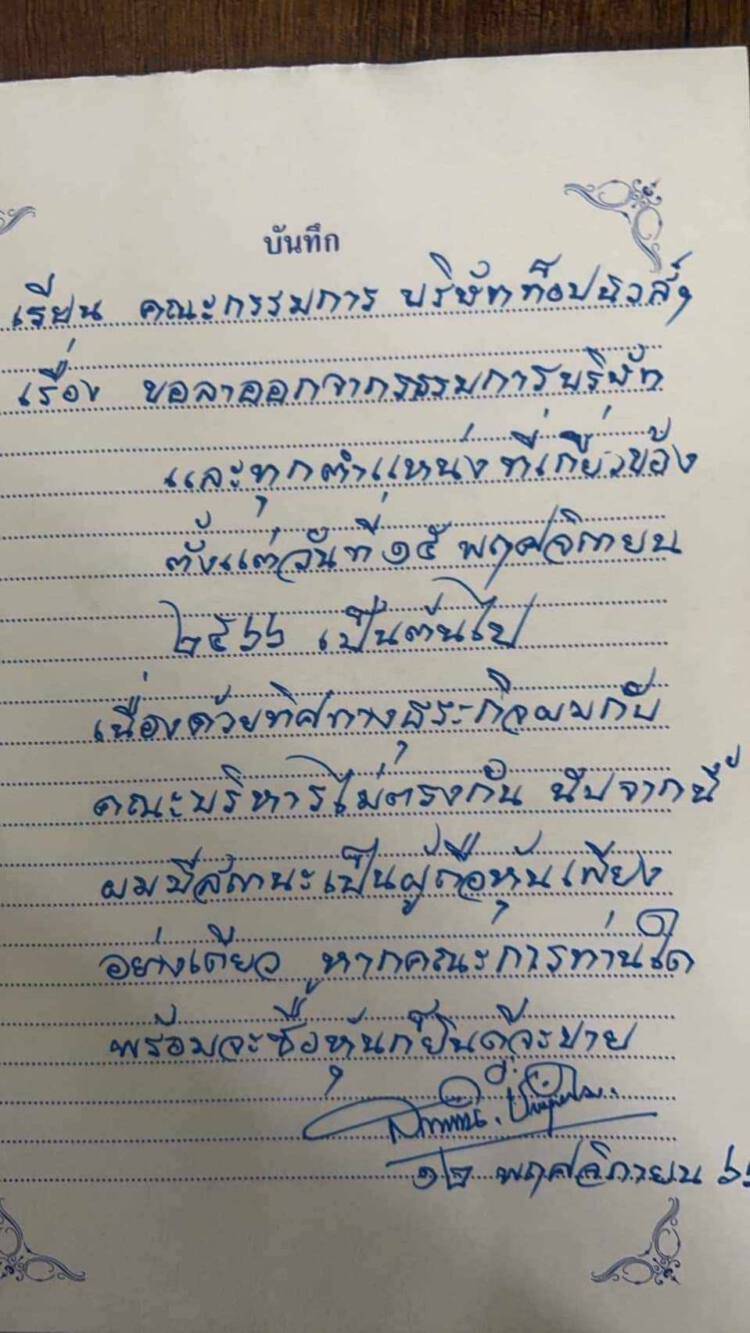 บันทึก
เรียน คณะกรรมการ บริษัทท็อปนิวส์ฯ
เรื่อง ขอลาออกจากกรรมการบริษัท
และทุกตำแหน่งที่เกี่ยวข้อง
ตั้งแต่วันที่ ๑๕ พฤศจิกายน
๒๕๖๖ เป็นต้นไป
เนื่องด้วยทิศทางธุระกิจผมกับ
คณะบริหารไม่ตรงกัน นับจากนี้
ผมมีสถานะเป็นผู้ถือหุ้นเพียง
อย่างเดียว หากคณะการท่านใด
พร้อมจะซื้อหุ้นก็ยินดีจะขาย
๑๒ พฤศจิกายน ๖๖